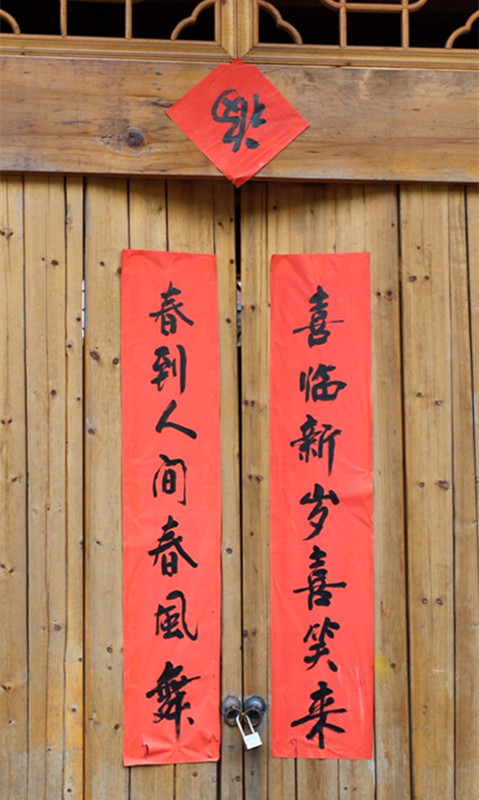 福
喜临新岁喜笑来
春到人间春風舞